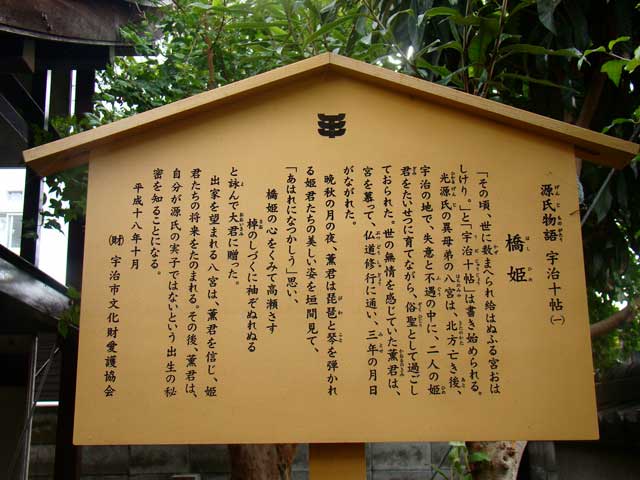 源氏物語 宇治十帖(一)
橋姫
「その頃、世に数まへられ給はぬふる宮おは
しけり。」と「宇治十帖」は書き始められる。
光源氏の異母弟の八宮は、北方亡き後、
宇治の地で、失意と不遇の中に、二人の姫
君をたいせつに育てながら、俗聖として過ごし
ておられた。世の無情を感じていた薫君は、
宮を慕って、仏道修行に通い、三年の月日
がながれた。
晩秋の月の夜、薫君は琵琶と琴を弾かれ
る姫君たちの美しい姿を垣間見て、
「あはれになつかしう」思い、
橋姫の心をくみて高瀬さす
棹のしづくに袖ぞぬれぬる
と詠んで大君に贈った。
出家を望まれる八宮は、薫君を信じ、姫
君たちの将来をたのまれる。その後、薫君は、
自分が源氏の実子ではないという出生の秘
密を知ることになる。
平成十八年十月
(財)宇治市文化財愛護協会